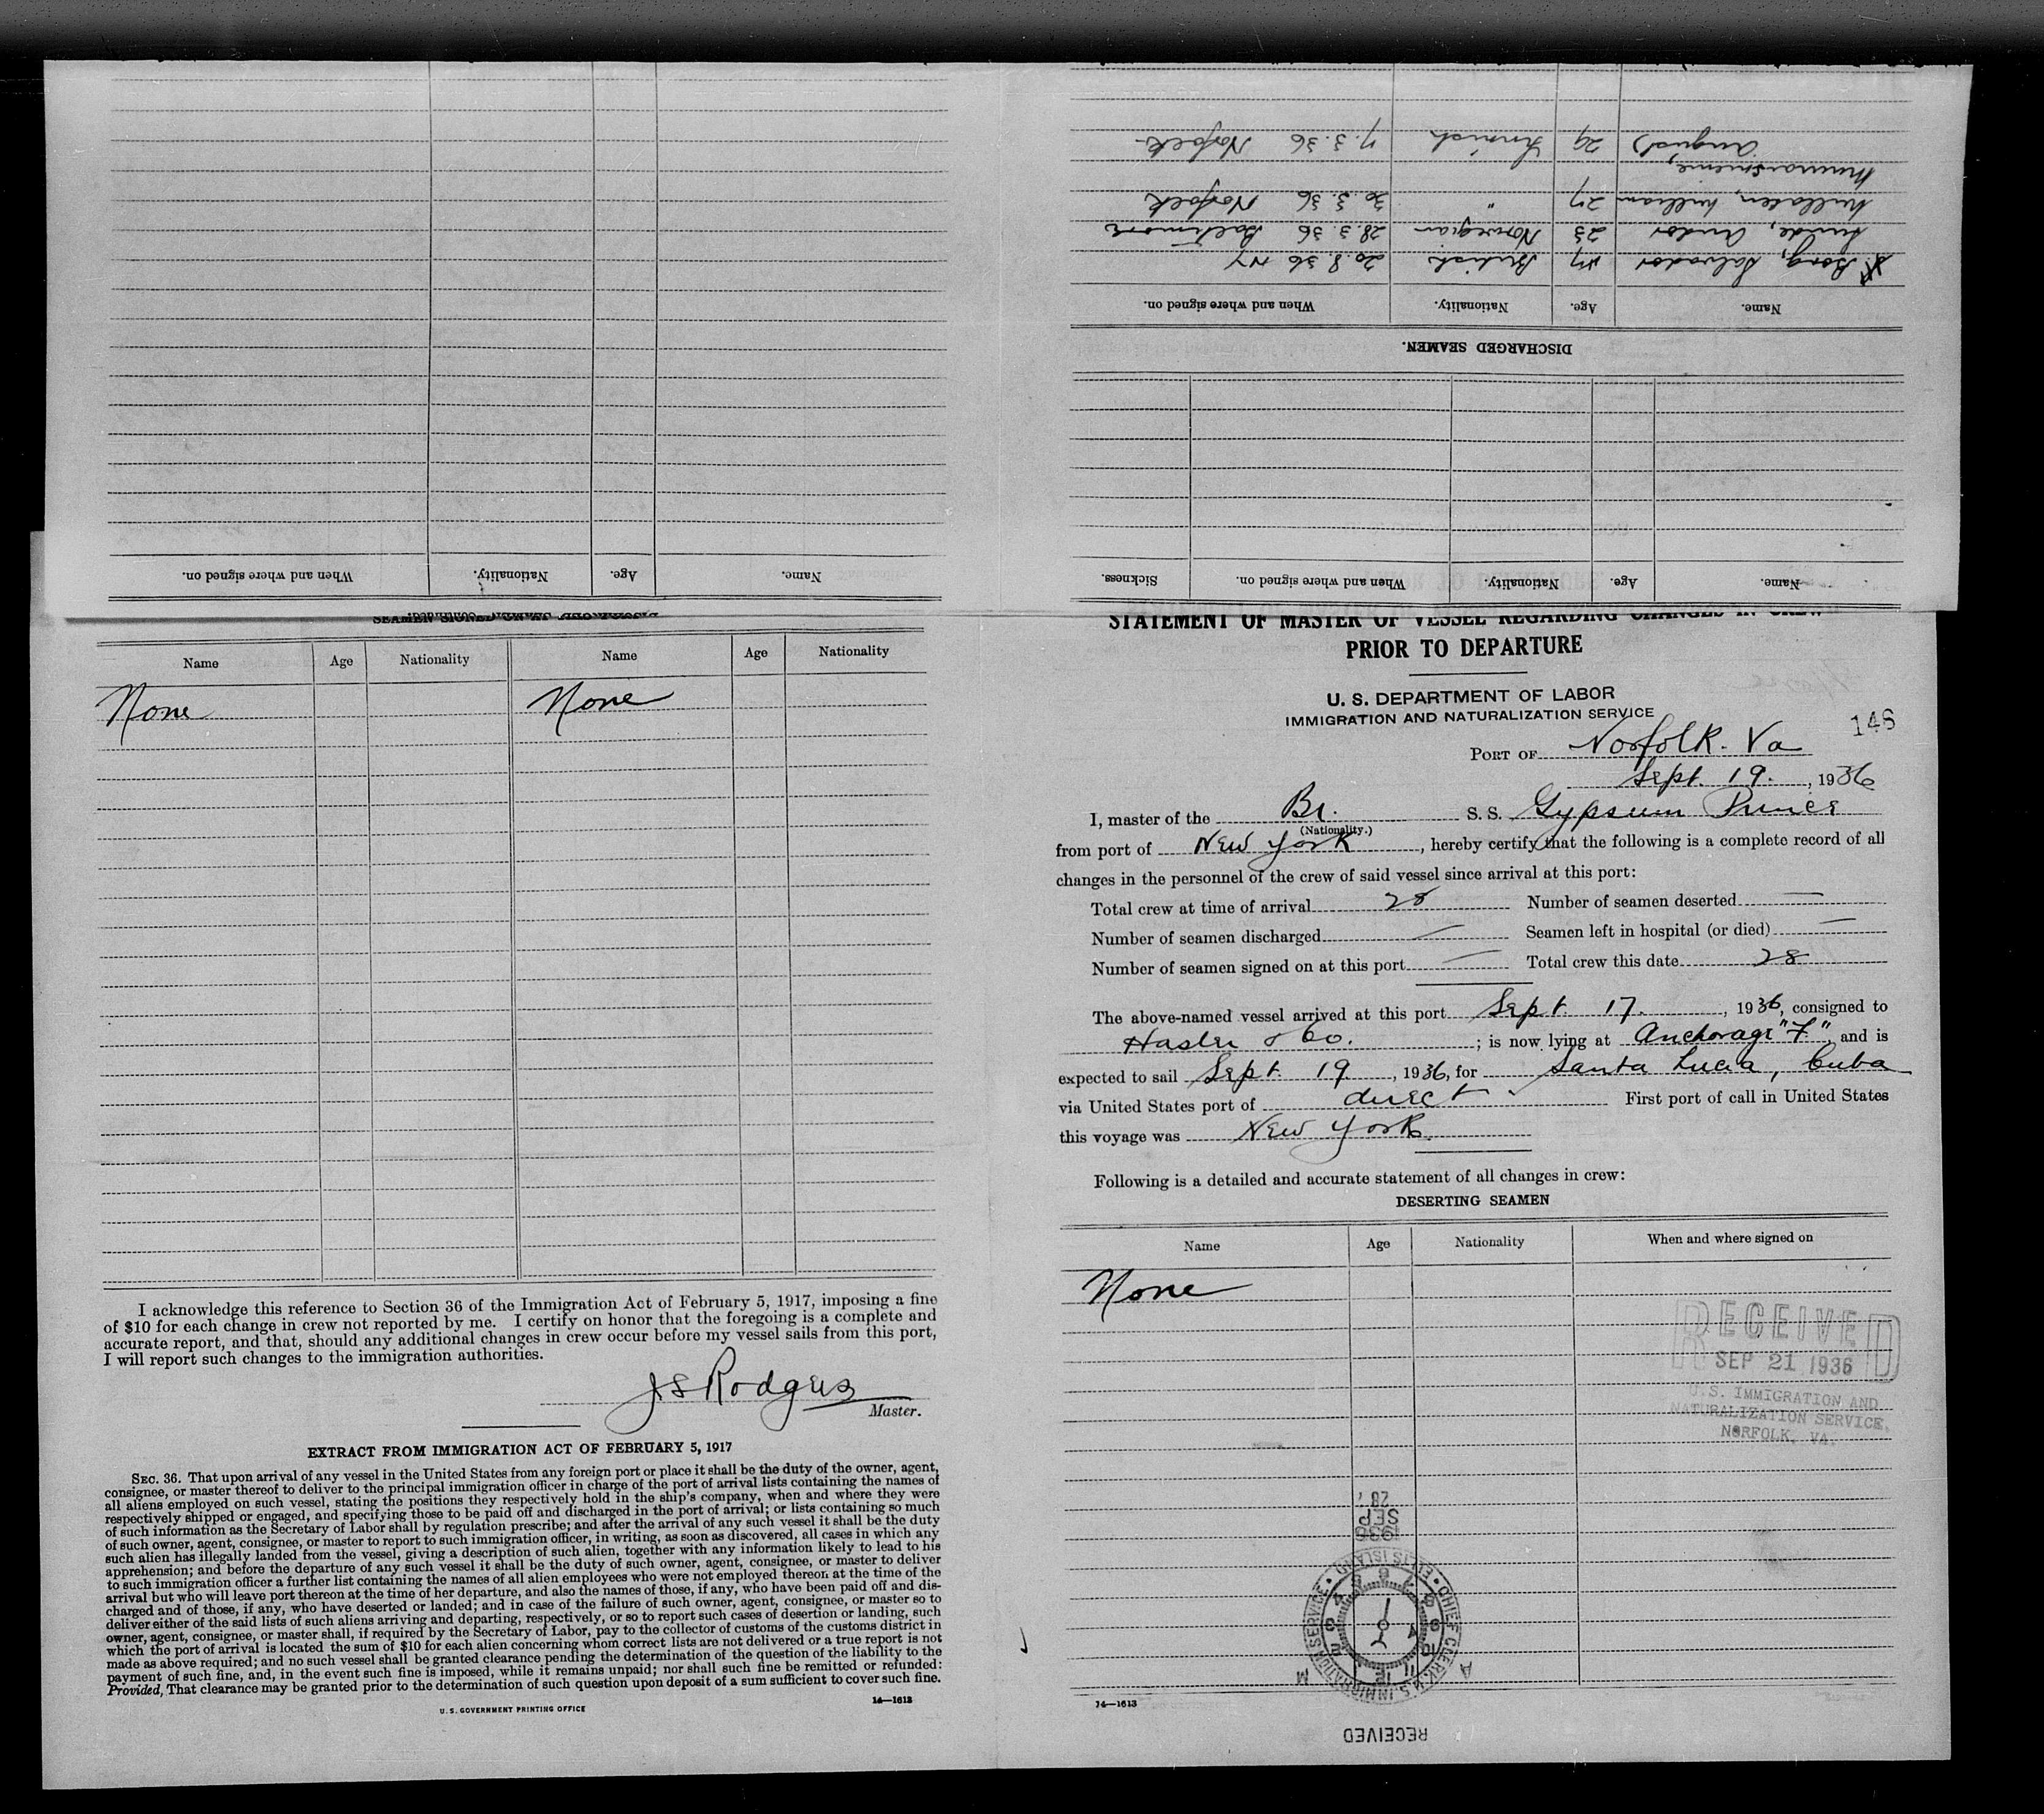 When and where signed on.
Nationality.
Age.
Name.
DISCHARGED SEAMEN.
Name.
Age.
Nationality.
When and where signed on.
Borg, Salvador 47 British 20.8.36 NY
Lunde, Andor 23 Norwegian 28.3.36 Baltimore
William 27 " 30.3.36 Norfolk
August 29 Finnish 7.3.36 Norfolk
Name.
Age.
Nationality.
When and where signed on.
Sickness.
Name
Age
Nationality
Name
Age
Nationality
None
None
I acknowledge this reference to Section 36 of the Immigration Act of February 5, 1917, imposing a fine
of $10 for each change in crew not reported by me. I certify on honor that the foregoing is a complete and
accurate report, and that, should any additional changes in crew occur before my vessel sails from this port,
I will report such changes to the immigration authorities.
J S Rodgers
Master.
EXTRACT FROM IMMIGRATION ACT OF FEBRUARY 5, 1917
SEC. 36. That upon arrival of any vessel in the United States from any foreign port or place it shall be the duty of the owner, agent,
consignee, or master thereof to deliver to the principal immigration officer in charge of the port of arrival lists containing the names of
all aliens employed on such vessel, stating the positions they respectively hold in the ship's company, when and where they were
respectively shipped or engaged, and specifying those to be paid off and discharged in the port of arrival; or lists containing so much
of such information as the Secretary of Labor shall by regulation prescribe; and after the arrival of any such vessel it shall be the duty
of such owner, agent, consignee, or master to report to such immigration officer, in writing, as soon as discovered, all cases in which any
such alien has illegally landed from the vessel, giving a description of such alien, together with any information likely to lead to his
apprehension; and before the departure of any such vessel it shall be the duty of such owner, agent, consignee, or master to deliver
to such immigration officer a further list containing the names of all alien employees who were not employed thereon at the time of the
arrival but who will leave port thereon at the time of her departure, and also the names of those, if any, who have been paid off and dis-
charged and of those, if any, who have deserted or landed; and in case of the failure of such owner, agent, consignee, or master so to
deliver either of the said lists of such aliens arriving and departing, respectively, or so to report such cases of desertion or landing, such
owner, agent, consignee, or master shall, if required by the Secretary of Labor, pay to the collector of customs of the customs district in
which the port of arrival is located the sum of $10 for each alien concerning whom correct lists are not delivered or a true report is not
made as above required; and no such vessel shall be granted clearance pending the determination of the question of the liability to the
payment of such fine, and, in the event such fine is imposed, while it remains unpaid; nor shall such fine be remitted or refunded:
Provided, That clearance may be granted prior to the determination of such question upon deposit of a sum sufficient to cover such fine.
14—1613
U. S. GOVERNMENT PRINTING OFFICE
STATEMENT OF MASTER OF VESSEL REGARDING CHANGES IN CREW
PRIOR TO DEPARTURE
U. S. DEPARTMENT OF LABOR
IMMIGRATION AND NATURALIZATION SERVICE
146
PORT OF Norfolk. Va
Sept. 19. , 1936
I, master of the Br. S. S. Gypsum Prince
(Nationality.)
from port of New York , hereby certify that the following is a complete record of all
changes in the personnel of the crew of said vessel since arrival at this port:
Total crew at time of arrival 28 Number of seamen deserted —
Number of seamen discharged — Seamen left in hospital (or died) —
Number of seamen signed on at this port — Total crew this date 28
The above-named vessel arrived at this port Sept. 17. , 1936, consigned to
Hasler & Co. ; is now lying at Anchorage "F", and is
expected to sail Sept. 19 , 1936, for Santa Lucia, Cuba
via United States port of direct First port of call in United States
this voyage was New York.
Following is a detailed and accurate statement of all changes in crew:
DESERTING SEAMEN
Name
Age
Nationality
When and where signed on
None
RECEIVED
SEP 21 1936
U.S. IMMIGRATION AND
NATURALIZATION SERVICE,
NORFOLK, VA.
SEP
1936
CHIEF CLERK U.S. IMMIGRATION SERVICE • ELLIS ISLAND •
A M
14—1613
RECEIVED